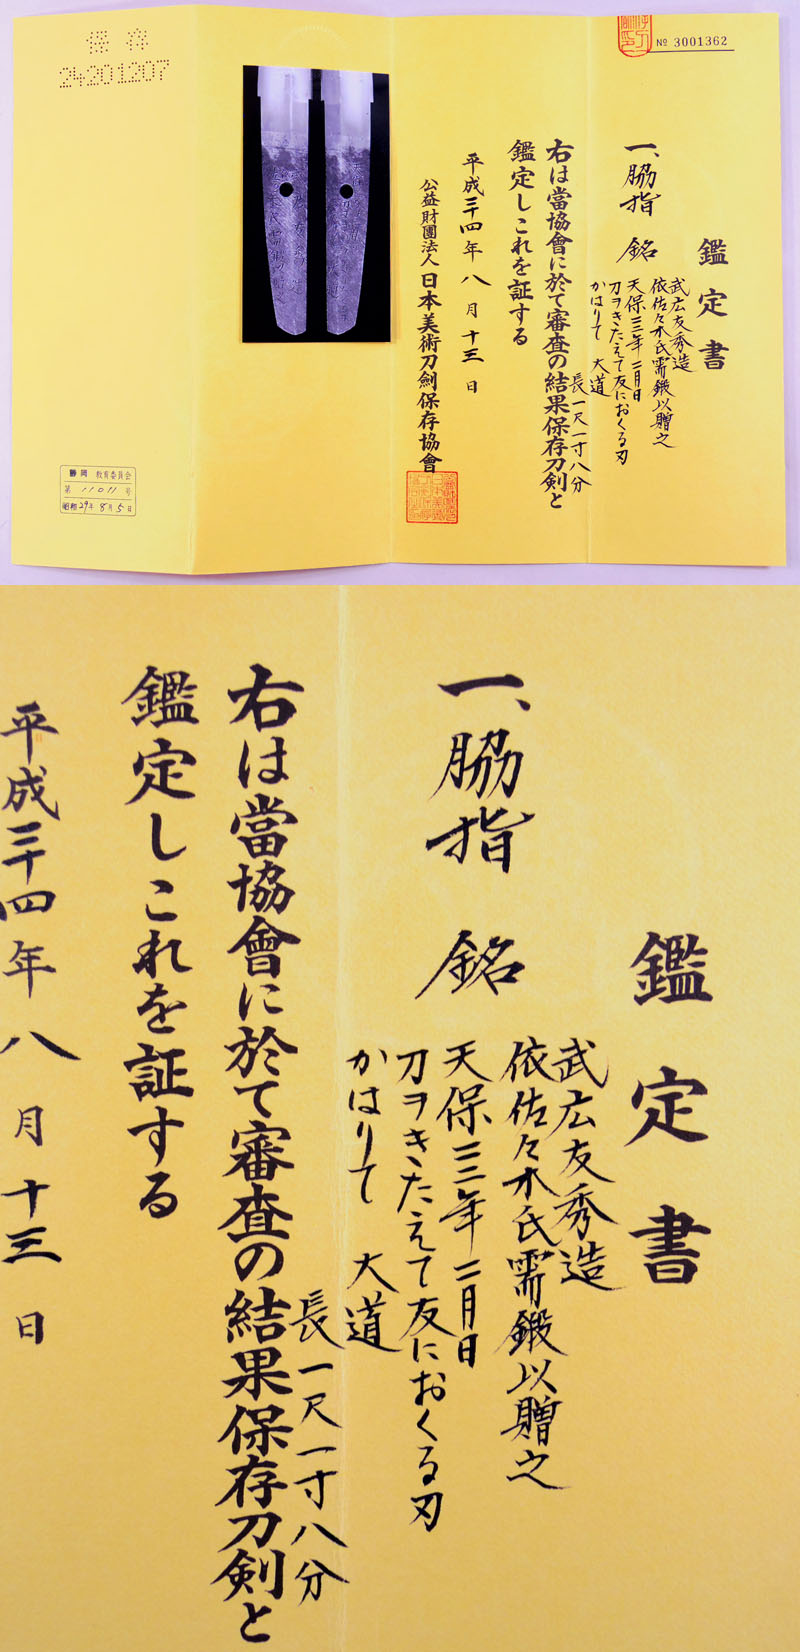 № 3001362
鑑定書
一、脇指 銘
武広友秀造
依佐々木氏需鍛以贈之
天保三三年二月日
刀ヲきたえて友におくる刃
かはりて 大道
長一尺一寸八分
右は當協會に於て審査の結果保存刀剣と
鑑定しこれを証する
平成二十四年八月十三日
公益財團法人日本美術刀劍保存協會
保存
24201207
静岡 教育委員会
第 11011 号
昭和29年8月5日
鑑定書
一、脇指 銘
武広友秀造
依佐々木氏需鍛以贈之
天保三三年二月日
刀ヲきたえて友におくる刃
かはりて 大道
長一尺一寸八分
右は當協會に於て審査の結果保存刀剣と
鑑定しこれを証する
平成二十四年八月十三日